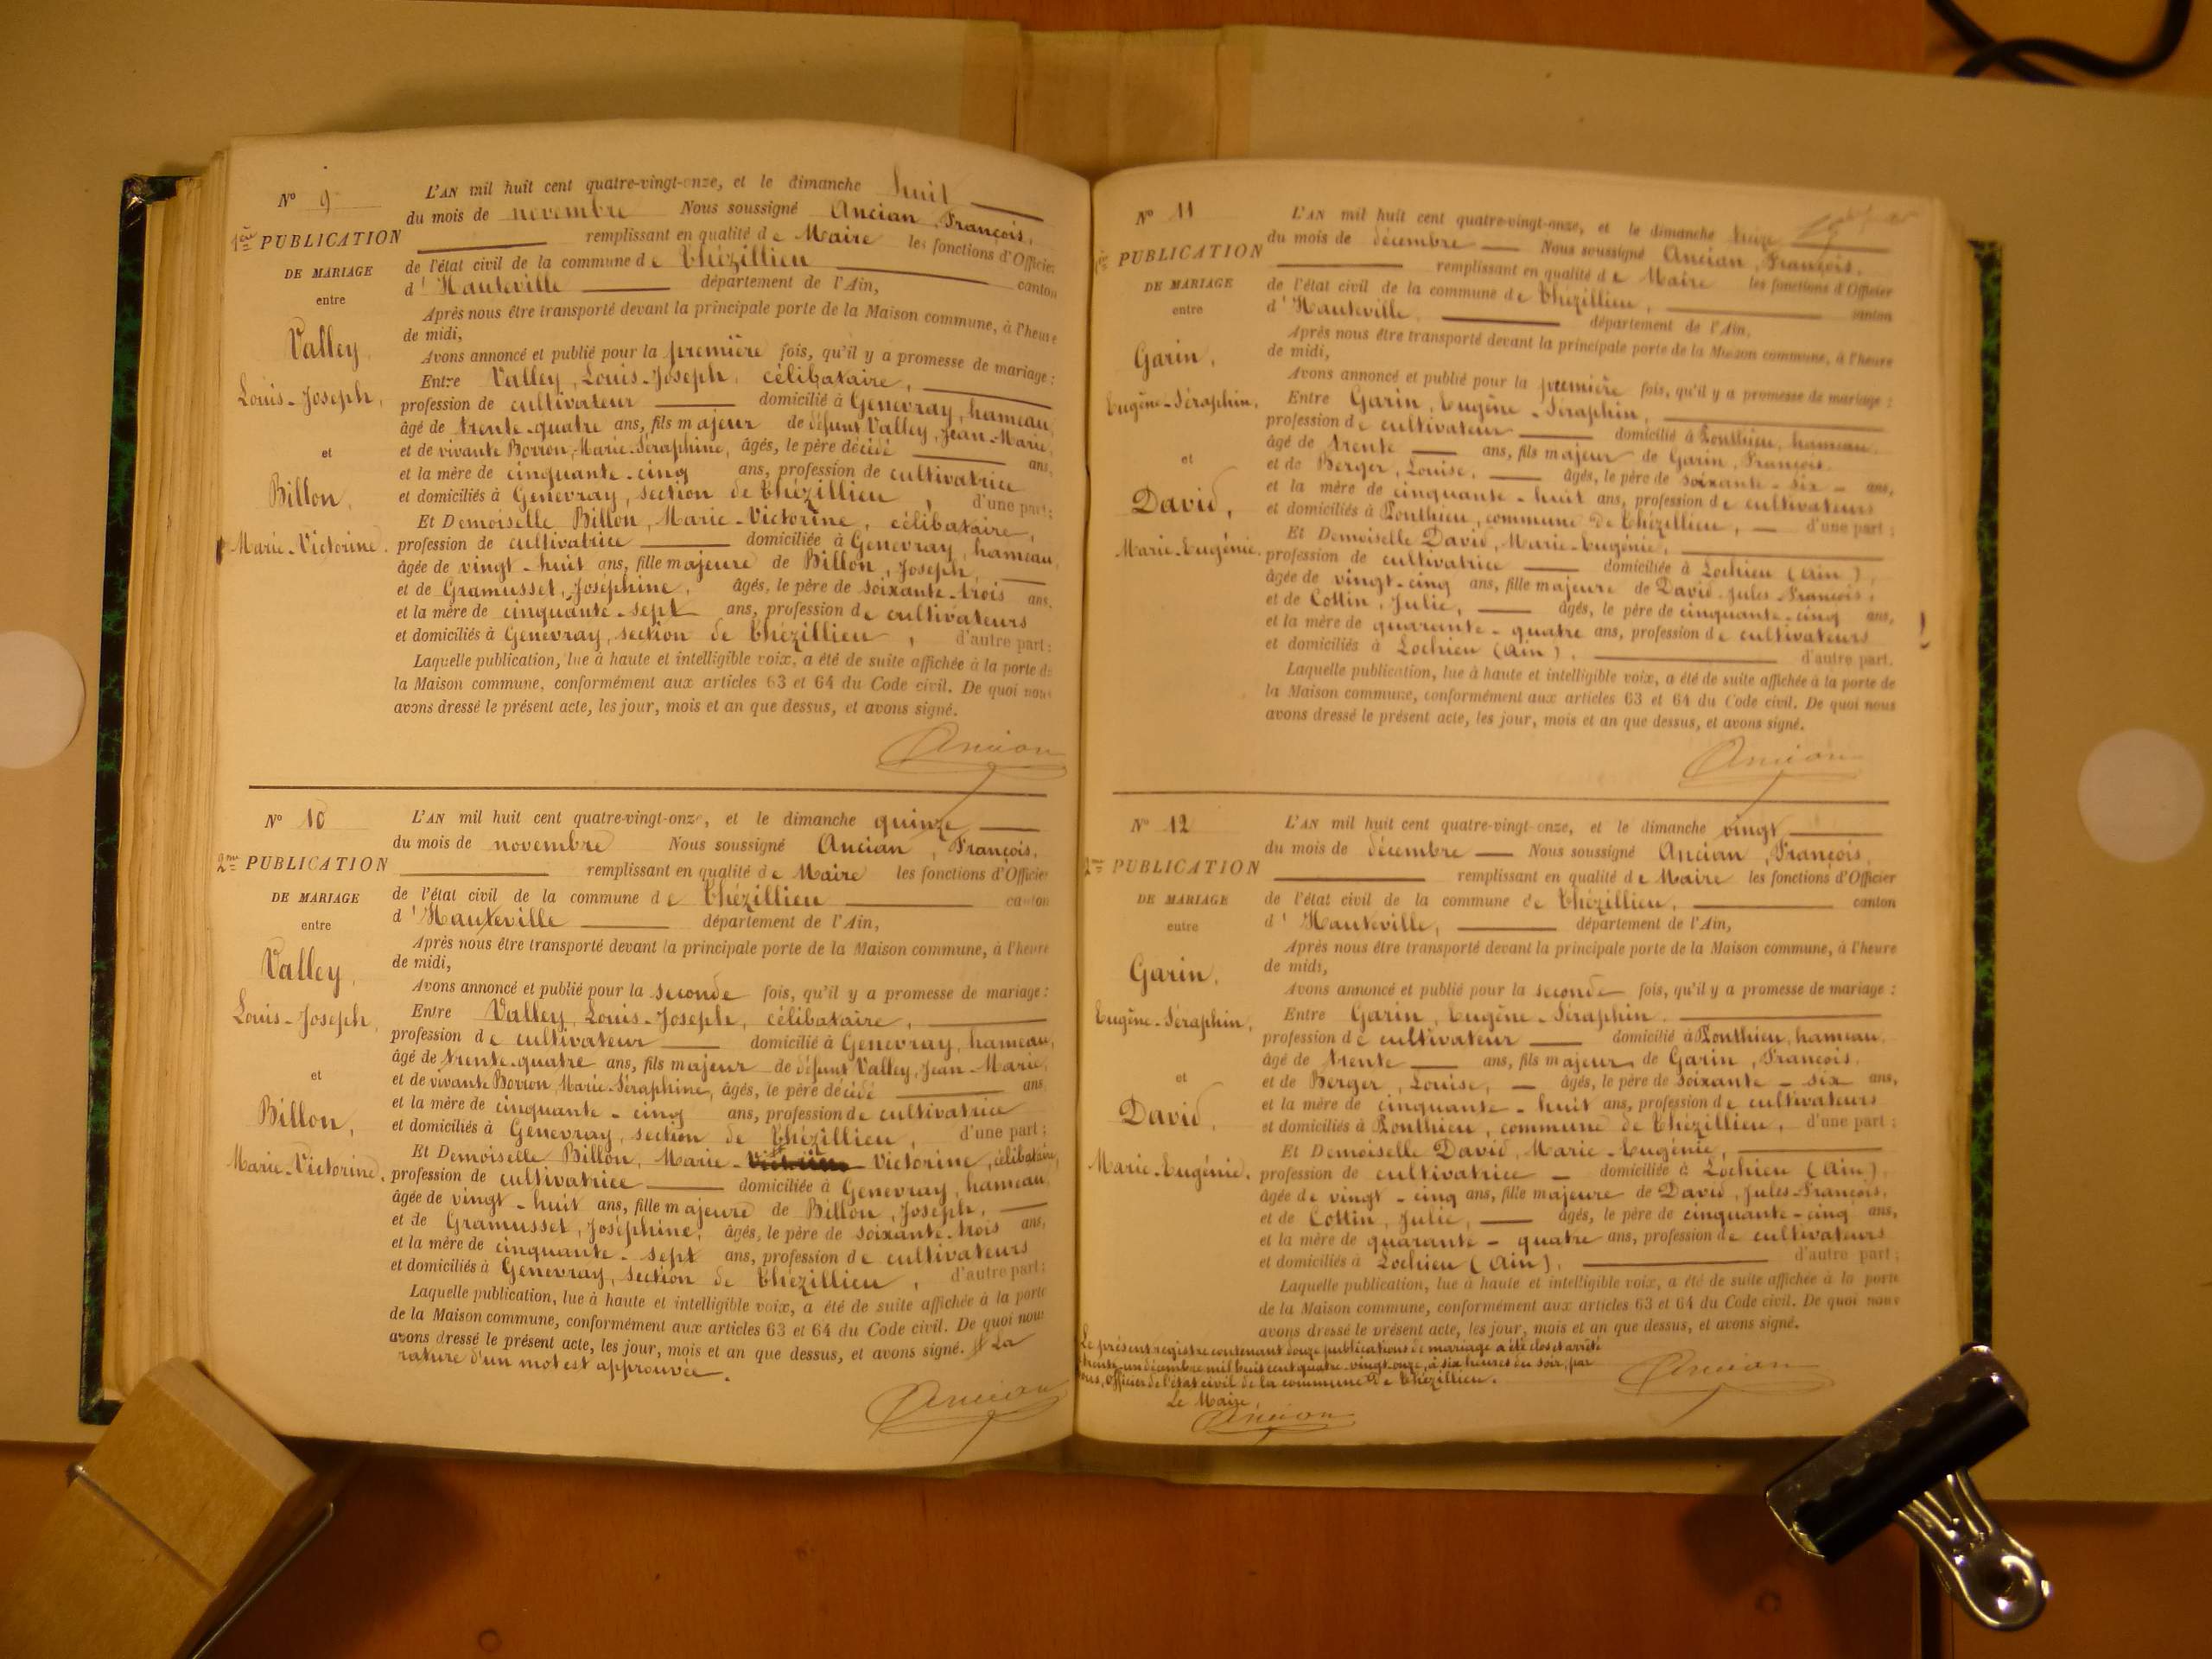 N° 9
1ère PUBLICATION
DE MARIAGE
entre
Valley,
Louis-Joseph,
et
Billon,
Marie-Victorine.
L'AN mil huit cent quatre-vingt-onze, et le dimanche huit
du mois de novembre Nous soussigné Ancian, François,
remplissant en qualité de Maire les fonctions d'Officier
de l'état civil de la commune de Thézillieu canton
d'Hauteville département de l'Ain,
Après nous être transporté devant la principale porte de la Maison commune, à l'heure
de midi,
Avons annoncé et publié pour la première fois, qu'il y a promesse de mariage :
Entre Valley, Louis-Joseph, célibataire,
profession de cultivateur domicilié à Genevray, hameau,
âgé de trente-quatre ans, fils majeur de défunt Valley, Jean-Marie,
et de vivante Borron, Marie-Séraphine, âgés, le père décédé ans,
et la mère de cinquante-cinq ans, profession de cultivatrice
et domiciliés à Genevray, section de Thézillieu, d'une part;
Et Demoiselle Billon, Marie-Victorine, célibataire,
profession de cultivatrice domiciliée à Genevray, hameau,
âgée de vingt-huit ans, fille majeure de Billon, Joseph,
et de Gramusset, Joséphine, âgés, le père de soixante-trois ans,
et la mère de cinquante-sept ans, profession de cultivateurs
et domiciliés à Genevray, section de Thézillieu, d'autre part;
Laquelle publication, lue à haute et intelligible voix, a été de suite affichée à la porte de
la Maison commune, conformément aux articles 63 et 64 du Code civil. De quoi nous
avons dressé le présent acte, les jour, mois et an que dessus, et avons signé.
Ancian
N° 10
2me PUBLICATION
DE MARIAGE
entre
Valley,
Louis-Joseph,
et
Billon,
Marie-Victorine.
L'AN mil huit cent quatre-vingt-onze, et le dimanche quinze
du mois de novembre Nous soussigné Ancian, François,
remplissant en qualité de Maire les fonctions d'Officier
de l'état civil de la commune de Thézillieu canton
d'Hauteville département de l'Ain,
Après nous être transporté devant la principale porte de la Maison commune, à l'heure
de midi,
Avons annoncé et publié pour la seconde fois, qu'il y a promesse de mariage :
Entre Valley, Louis-Joseph, célibataire,
profession de cultivateur domicilié à Genevray, hameau,
âgé de trente-quatre ans, fils majeur de défunt Valley, Jean-Marie,
et de vivante Borron, Marie-Séraphine, âgés, le père décédé ans,
et la mère de cinquante-cinq ans, profession de cultivatrice
et domiciliés à Genevray, section de Thézillieu, d'une part;
Et Demoiselle Billon, Marie- Victorine, célibataire,
profession de cultivatrice domiciliée à Genevray, hameau,
âgée de vingt-huit ans, fille majeure de Billon, Joseph,
et de Gramusset, Joséphine, âgés, le père de soixante-trois ans,
et la mère de cinquante-sept ans, profession de cultivateurs
et domiciliés à Genevray, section de Thézillieu, d'autre part;
Laquelle publication, lue à haute et intelligible voix, a été de suite affichée à la porte
de la Maison commune, conformément aux articles 63 et 64 du Code civil. De quoi nous
avons dressé le présent acte, les jour, mois et an que dessus, et avons signé. La
rature d'un mot est approuvée.
Ancian
N° 11
1ère PUBLICATION
DE MARIAGE
entre
Garin,
Eugène-Séraphin,
et
David,
Marie-Eugénie.
L'AN mil huit cent quatre-vingt-onze, et le dimanche treize
du mois de décembre Nous soussigné Ancian, François,
remplissant en qualité de Maire les fonctions d'Officier
de l'état civil de la commune de Thézillieu, canton
d'Hauteville, département de l'Ain,
Après nous être transporté devant la principale porte de la Maison commune, à l'heure
de midi,
Avons annoncé et publié pour la première fois, qu'il y a promesse de mariage :
Entre Garin, Eugène-Séraphin,
profession de cultivateur domicilié à Ponthieu, hameau,
âgé de trente ans, fils majeur de Garin, François,
et de Berger, Louise, âgés, le père de soixante-six ans,
et la mère de cinquante-huit ans, profession de cultivateurs
et domiciliés à Ponthieu, commune de Thézillieu, d'une part;
Et Demoiselle David, Marie-Eugénie,
profession de cultivatrice domiciliée à Lochieu (Ain),
âgée de vingt-cinq ans, fille majeure de David, Jules-François,
et de Cottin, Julie, âgés, le père de cinquante-cinq ans,
et la mère de quarante-quatre ans, profession de cultivateurs
et domiciliés à Lochieu (Ain), d'autre part.
Laquelle publication, lue à haute et intelligible voix, a été de suite affichée à la porte de
la Maison commune, conformément aux articles 63 et 64 du Code civil. De quoi nous
avons dressé le présent acte, les jour, mois et an que dessus, et avons signé.
Ancian
N° 12
2me PUBLICATION
DE MARIAGE
entre
Garin,
Eugène-Séraphin,
et
David,
Marie-Eugénie.
L'AN mil huit cent quatre-vingt-onze, et le dimanche vingt
du mois de décembre Nous soussigné Ancian, François,
remplissant en qualité de Maire les fonctions d'Officier
de l'état civil de la commune de Thézillieu, canton
d'Hauteville, département de l'Ain,
Après nous être transporté devant la principale porte de la Maison commune, à l'heure
de midi,
Avons annoncé et publié pour la seconde fois, qu'il y a promesse de mariage :
Entre Garin, Eugène-Séraphin.
profession de cultivateur domicilié à Ponthieu, hameau,
âgé de trente ans, fils majeur de Garin, François,
et de Berger, Louise, âgés, le père de soixante-six ans,
et la mère de cinquante-huit ans, profession de cultivateurs
et domiciliés à Ponthieu, commune de Thézillieu, d'une part;
Et Demoiselle David, Marie-Eugénie,
profession de cultivatrice domiciliée à Lochieu (Ain),
âgée de vingt-cinq ans, fille majeure de David, Jules-François,
et de Cottin, Julie, âgés, le père de cinquante-cinq ans,
et la mère de quarante-quatre ans, profession de cultivateurs
et domiciliés à Lochieu (Ain), d'autre part;
Laquelle publication, lue à haute et intelligible voix, a été de suite affichée à la porte
de la Maison commune, conformément aux articles 63 et 64 du Code civil. De quoi nous
avons dressé le présent acte, les jour, mois et an que dessus, et avons signé.
Ancian
Le présent registre contenant douze publications de mariage a été clos et arrêté
trente-un décembre mil huit cent quatre-vingt-onze, à six heures du soir, par
nous, Officier de l'état civil de la commune de Thézillieu.
Le Maire,
Ancian